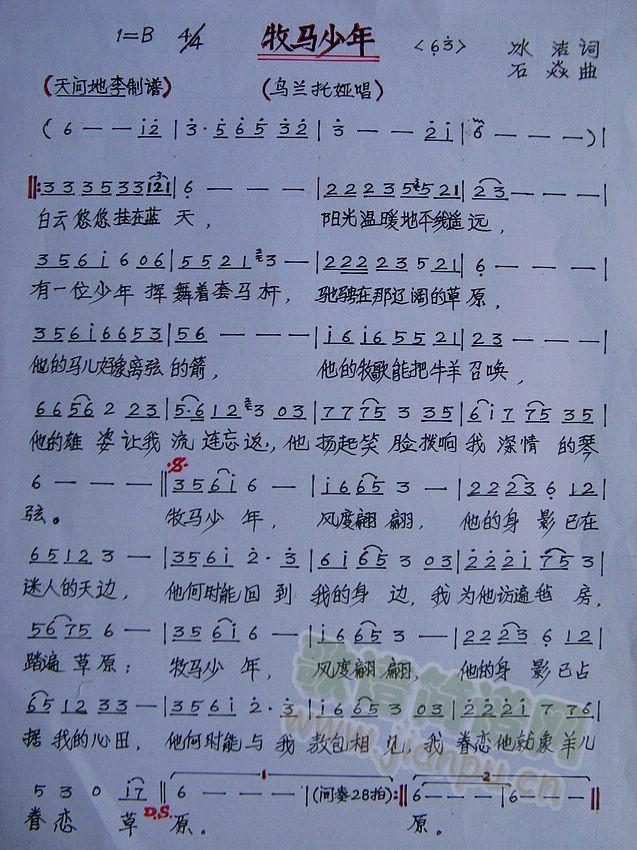 1=B 4/4 牧马少年 <6 3> 冰洁词
石焱曲
(天问地李制谱) (乌兰托娅唱)
( 6 — — i2 | 3· 5 6 5 32 | 3 — — 2i | 6 — — — ) |
‖: 3 3 3 5 3 3 121 | 6 — — — | 2 2 2 3 5 5 21 | 2 3 — — — |
白云悠悠挂在蓝天, 阳光温暖地平线遥远,
3 5 6 i 6 0 6 | 5 5 2 1 3 — | 2 2 2 2 3 5 2 1 | 6 — — — |
有一位少年挥舞着套马杆, 驰骋在那辽阔的草原,
3 5 6 i 6 6 5 3 | 5 6 — — — | i 6 i 6 5 5 2 1 | 2 3 — — |
他的马儿好象离弦的箭, 他的牧歌能把牛羊召唤,
6 6 5 6 2 2 3 | 5· 6 1 2 3 0 3 | 7 7 7 5 3 3 5 | 6 i 7 7 5 3 5 |
他的雄姿让我流连忘返,他扬起笑脸拨响我深情的琴
6 — — — ‖ 3 5 6 i 6 — | i 6 6 5 3 — | 2 2 2 3 6 1 2 |
弦。 牧马少年, 风度翩翩, 他的身影已在
6 5 1 2 3 — | 3 5 6 i 2· 3 | 6 i 6 5 3 0 3 | 2 2 2 i 7 5 3 |
迷人的天边, 他何时能回到我的身边,我为他访遍毡房,
5 6 7 5 6 — | 3 5 6 i 6 — | i 6 6 5 3 — | 2 2 2 3 6 1 2 |
踏遍草原; 牧马少年, 风度翩翩, 他的身影已占
6 5 1 2 3 3 — | 3 5 6 i 2· 3 | i 6 6 5 3 0 3 | 2 2 2 i 7 7 6 |
据我的心田, 他何时能与我敖包相见,我眷恋他就象羊儿
5 3 0 i 7 | 6 — — — | — — — (间奏28拍) :‖ 6 — — — | 6 — — ‖
眷恋草 D.S. 原。 原。
歌谱简谱网
www.jianpu.cn